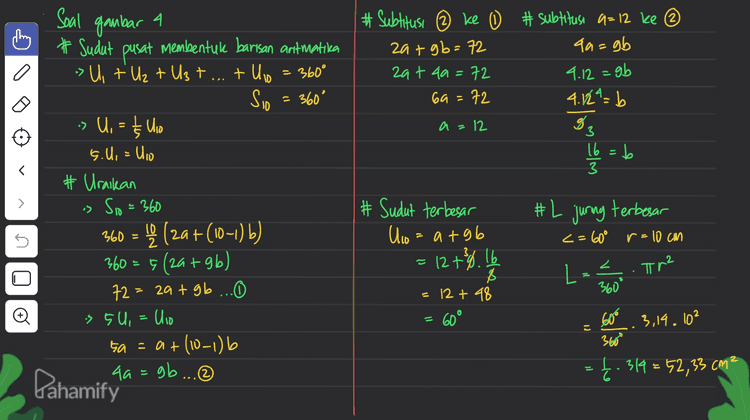 Soal gambar 4
# Sudut pusat membentuk barisan aritmatika
•> U₁ + U₂ + U₃ + ... + U₁₀ = 360°
S₁₀ = 360°
•> U₁ = 1/5 U₁₀
5.U₁ = U₁₀
# Uraikan
•> S₁₀ = 360
360 = 10/2 (2a + (10-1) b)
360 = 5 (2a + 9b)
72 = 2a + 9b ...①
•> 5U₁ = U₁₀
5a = a + (10-1) b
4a = 9b ...②
Pahamify
# Subtitusi ② ke ①
2a + 9b = 72
2a + 4a = 72
6a = 72
a = 12
# Subtitusi a = 12 ke ②
4a = 9b
4.12 = 9b
4.12⁴/9₃ = b
16/3 = b
# Sudut terbesar
U₁₀ = a + 9b
= 12 + 9³. 16/3
= 12 + 48
= 60°
# L juring terbesar
∠ = 60° r = 10 cm
L = ∠/360° . πr²
= 60°/360° . 3,14 . 10²
= 1/6 . 314 = 52,33 cm²